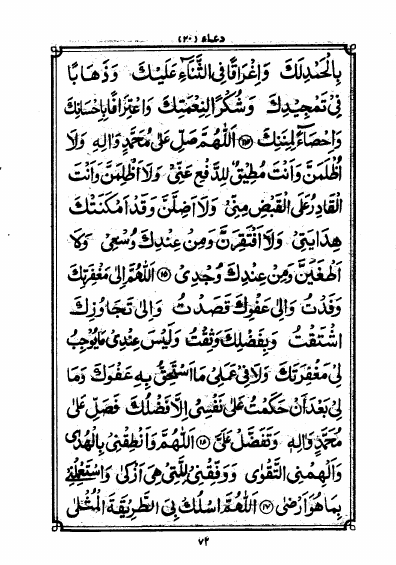 دعاء (۲۰)
بِالْحَمْدِ لَكَ وَاِغْرَاقًا فِی الثَّنَآءِ عَلَيْكَ وَذَهَابًا
فِیْ تَمْجِيْدِكَ وَشُكْرًا لِنِعْمَتِكَ وَاعْتِرَافًا بِاِحْسَانِكَ
وَاِحْصَآءً لِمِنَنِكَ اَللّٰهُمَّ صَلِّ عَلٰى مُحَمَّدٍ وَّاٰلِهٖ وَلَا
اُظْلَمَنَّ وَاَنْتَ مُطِيْقٌ لِلدَّفْعِ عَنِّیْ وَلَا اَظْلِمَنَّ وَاَنْتَ
الْقَادِرُ عَلَى الْقَبْضِ مِنِّیْ وَلَا اَضِلَّنَّ وَقَدْ اَمْكَنَتْكَ
هِدَايَتِیْ وَلَا اَفْتَقِرَنَّ وَمِنْ عِنْدِكَ وُسْعِیْ وَلَا
اَطْغَيَنَّ وَمِنْ عِنْدِكَ وُجْدِیْ (۱۵) اَللّٰهُمَّ اِلٰى مَغْفِرَتِكَ
وَفَدْتُ وَاِلٰى عَفْوِكَ قَصَدْتُ وَاِلٰى تَجَاوُزِكَ
اشْتَقْتُ وَبِفَضْلِكَ وَثِقْتُ وَلَيْسَ عِنْدِیْ مَا يُوْجِبُ
لِیْ مَغْفِرَتَكَ وَلَا فِیْ عَمَلِیْ مَا اَسْتَحِقُّ بِهٖ عَفْوَكَ وَمَا
لِیْ بَعْدَ اَنْ حَكَمْتُ عَلٰى نَفْسِیْ اِلَّا فَضْلُكَ فَصَلِّ عَلٰى
مُحَمَّدٍ وَّاٰلِهٖ وَتَفَضَّلْ عَلَیَّ اَللّٰهُمَّ وَاَنْطِقْنِیْ بِالْهُدٰى
وَاَلْهِمْنِی التَّقْوٰى وَوَفِّقْنِیْ لِلَّتِیْ هِیَ اَزْكٰى وَاسْتَعْمِلْنِیْ
بِمَا هُوَ اَرْضٰى اَللّٰهُمَّ اسْلُكْ بِیَ الطَّرِيْقَةَ الْمُثْلٰى
۷۴